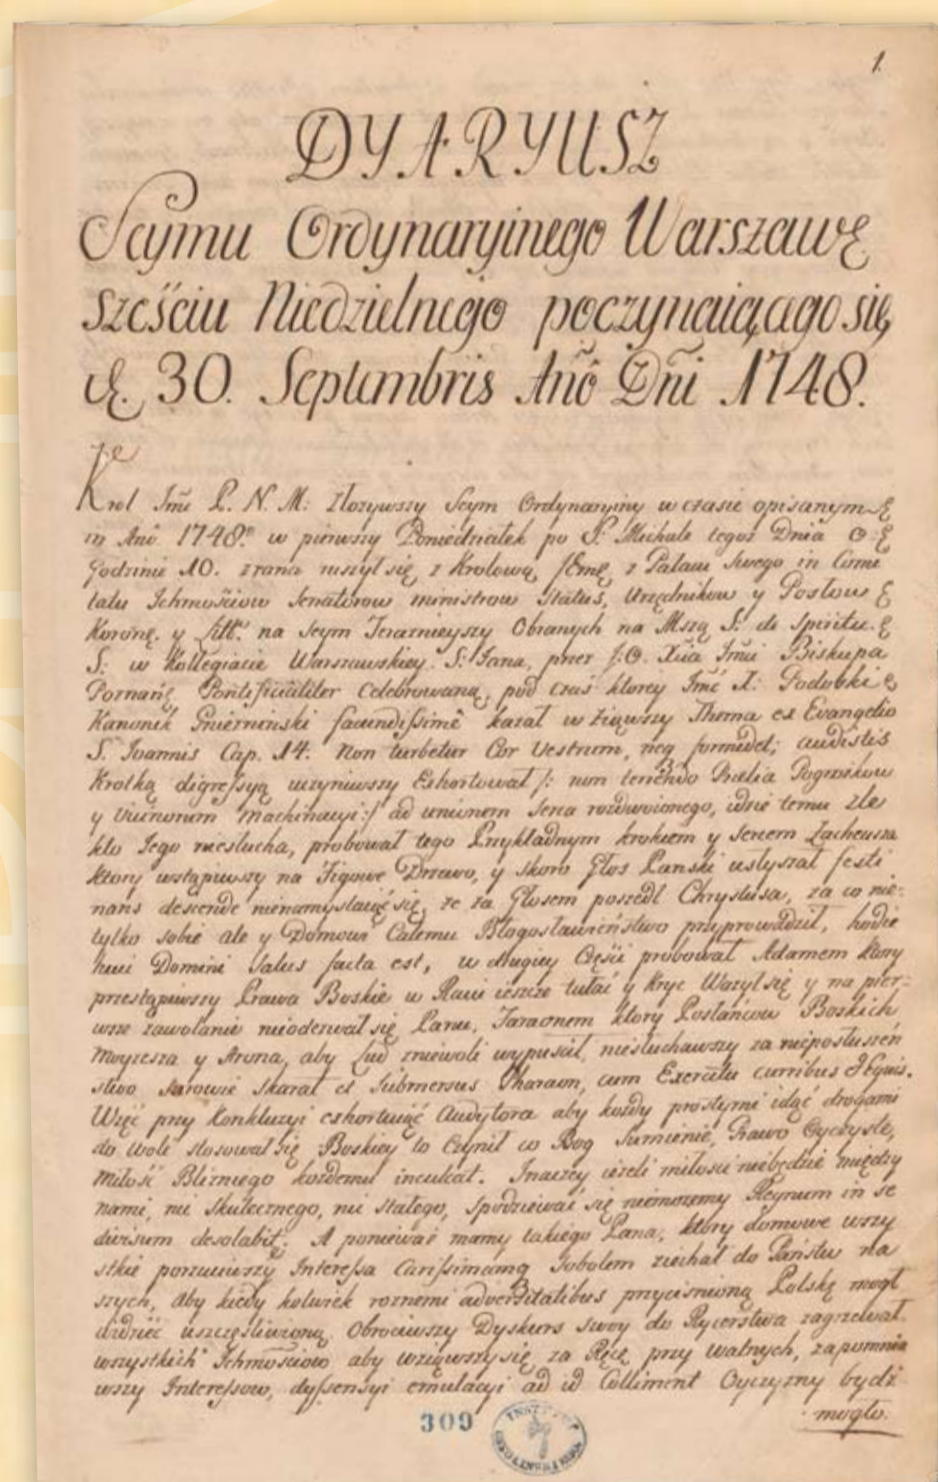 1.
DYARYUSZ
Seymu Ordynaryinego Warszawę
sześciu Niedzielnego poczynaiącego się
d. 30. Septembris Anõ Dñi 1748.
Krol Imć P. N. M: złozywszy Seym Ordynaryiny w czasie opisanym
in Anõ 1748º w pierwszy Poniedziałek po S. Michale tegoz Dnia o
Godzinie 10. zrana ruszył się z Krolową JEmę z Pałacu swego in Comi
tatu Ichmościow Senatorow ministrow Status, Urzędnikow y Posłow
Koronę. y Litt. na Seym Teraznieyszy Obranych na Mszą S. de Spiritu
S: w Kollegiacie Warszawskiey S: Jana, przez J.O. Xcia Imci Biskupa
Poznanę. Pontificaliter Celebrowaną, pod czas ktorey Imć X: Podoski
Kanonik Gniezninski facundissimè kazał wziąwszy Thema ex Evangelio
S. Joannis Cap. 14. Non turbetur Cor vestrum, neq formidet; audistis
Krotką digressyą uczyniwszy Exhortował /: non
y machinacyi :/ ad unionem serca rozdwoionego, idzie temu zle
kto Jego niesłucha, probował tego Przykładnym krokiem y sercem Zacheusza
ktory wstąpiwszy na Figowe Drzewo, y skoro Głos Panski usłyszał festi
nans descende nienamyslaiąc się, ze za Głosem poszedł Chrystusa, za co nie-
tylko sobie ale y Domowi Całemu Błogosławieństwo przyprowadził, hodie
huic Domini salus facta est, w drugiey Części probował Adamem ktory
przestąpiwszy Prawa Boskie w Raiu ieszcze tułać y Kryc Wazył się y na pier-
wsze zawołanie nieoderwał się Panu, Faraonem ktory Posłańcow Boskich
Moyzesza y Arona, aby Lud zniewoli wypuscił, niesłuchawszy za niepołuszeń
stwo surowie skarał et Submersus Pharaon, cum Exercitu curribus & Equis.
Więc przy Konkluzyi exhortuiąc Audytora aby kozdy prostymi idąc drogami
do woli stosował się Boskiey to Czynił co Bog Sumienie, Prawo Oyczyste,
Miłość Blizniego kozdemu inculcat. Inaczey iezeli miłosci niebędzie między
nami, nic skutecznego, nic stałego, spodziewać się niemozemy Regnum in se
divisum desolabit; A poniewaz mamy takiego Pana, ktory domowe wszy
stkie porzuciwszy Interessa Carissimamq Sobolem ziechał do Państw na
szych, Aby kiedy kolwiek roznemi adversitatibus przycisnioną Polskę mogł
widzieć uszczęśliwioną. Obrociwszy Dyskurs swoy do Rycerstwa zagrzewał
wszystkich Ichmościow aby wziąwszy się za Ręcę przy walnych, zapomnia
wszy Interessow, dyssensyi emulacyi ad id Colliment Oyczyzny bydz
mogło.
309